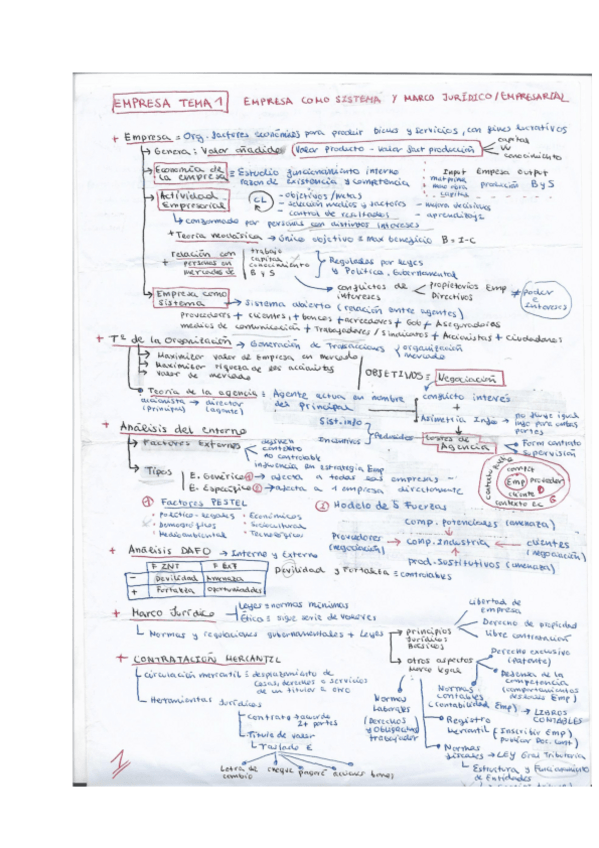 EMPRESA TEMA 1 EMPRESA COMO SISTEMA Y MARCO JURÍDICO/EMPRESARIAL
+ Empresa = Org. factores económicos para producir bienes y servicios, con fines lucrativos
Genera: Valor añadido (Valor producto - valor fact producción) capital
conocimiento
Economía de la empresa = Estudio funcionamiento interno
razón de existencia y competencia
Input Empresa Output
producción B y S
Actividad Empresarial
- objetivos/metas
- selección medios y factores
- control de resultados
- mejora decisiones
- aprendizaje
conformado por personas con distintos intereses
+ Teoría neoclásica → único objetivo = Max beneficio B = I-C
+ relación con personas en mercados de
trabajo
capital
conocimiento
B y S
Regulados por leyes
y Política Gubernamental
conflictos de intereses
propietarios Emp
Directivos
≠ poder e intereses
Empresa como sistema → Sistema abierto (relación entre agentes)
proveedores + clientes + bancos + acreedores + Gob + Aseguradoras
medios de comunicación + Trabajadores/Sindicatos + Accionistas + ciudadanos
+ Tª de la Organización → Generación de Transacciones
organización
mercado
Maximizar valor de Empresa en mercado
Maximizar riqueza de sus accionistas
Valor de mercado
OBJETIVOS = Negociación
Teoría de la agencia = Agente actua en nombre del principal
accionista → director
(principal) (agente)
conflicto interés
+
Asimetría Info → no fluye igual
info para ambas
partes
Sist. info
Incentivos
Costes de Agencia
Form contrato
Supervisión
+ Análisis del entorno
Factores Externos
contexto
no controlable
influencia en estrategia Emp
Tipos
E. Genérico 1 → afecta a todas las empresas
E. Específico 2 → afecta a 1 empresa directamente
Emp
proveedor
cliente
contexto
1 Factores PESTEL
• Político-legales • Económicos
• Demográficos • Socioculturales
• Medioambiental • Tecnológico
2 Modelo de 5 Fuerzas
comp. potenciales (amenaza)
Proveedores → comp. Industria ← clientes
(negociación) (negociación)
prod. sustitutivos (amenaza)
+ Análisis DAFO → Interno y Externo
F INT F EXT
- Devilidad Amenaza
+ Fortaleza Oportunidades
Devilidad y Fortaleza = controlables
+ Marco Jurídico
Leyes = normas mínimas
Ética = sigue serie de valores
Normas y regulaciones gubernamentales + Leyes
principios Jurídicos Básicos
Libertad de empresa
Derecho de propiedad
Libre contratación
otros aspectos Marco legal
Derecho exclusivo
(patente)
Defensa de la
competencia
(comportamientos
desleales Emp)
Normas contables
(contabilidad Emp) → LIBROS
CONTABLES
Registro
Mercantil (Inscribir Emp)
Normas
fiscales → LEY Gral Tributaria
Estructura y Funcionamiento
de Entidades
Normas
Laborales
(Derechos
y Obligaciones
trabajador)
+ CONTRATACIÓN MERCANTIL
circulación mercantil = desplazamiento de
cosas, derechos o servicios
de un titular a otro
Herramientas Jurídicas
contrato → acuerdo
2+ partes
Título de valor
Traslado €
Letra de cambio cheque pagaré acciones bonos
1